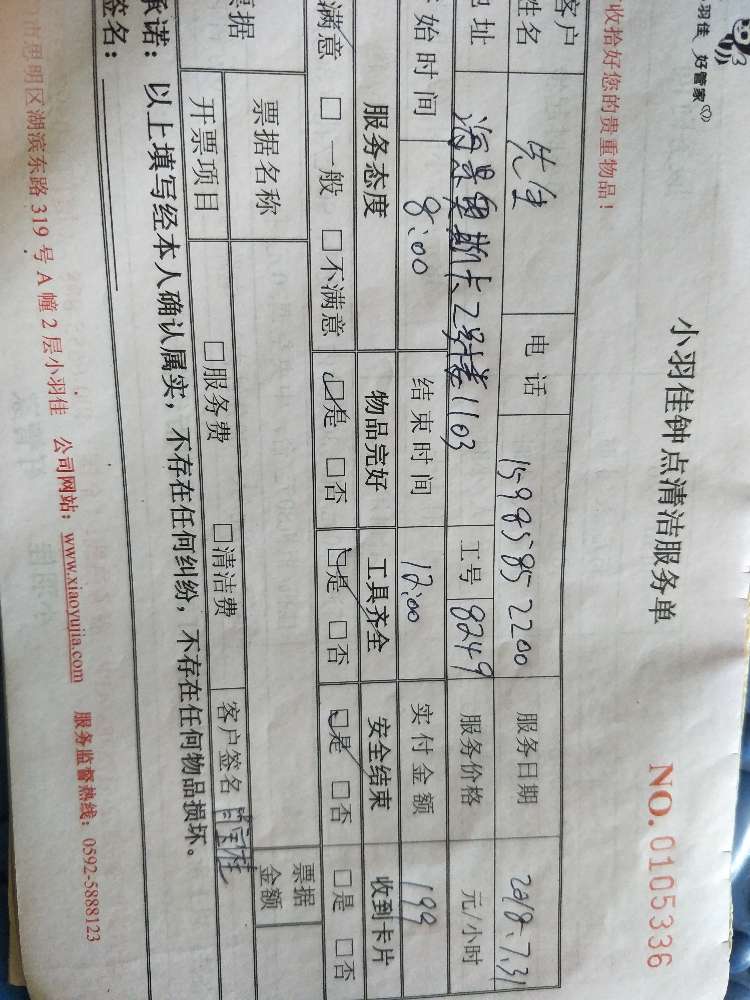 小羽佳 好管家
收拾好您的贵重物品！
小羽佳钟点清洁服务单
NO. 0105336
客户姓名 先生 电话 15985852200 服务日期 2018.7.31
地址 海景奥斯卡2号楼1103 工号 8249 服务价格 元/小时
开始时间 8:00 结束时间 12:00 实付金额 199
服务态度 物品完好 工具齐全 安全结束 收到卡片
满意 □ 一般 □ 不满意 □是 □否 □是 □否 □是 □否 □是 □否
票据 票据名称 票据金额
开票项目 □服务费 □清洁费 客户签名
承诺：以上填写经本人确认属实，不存在任何纠纷，不存在任何物品损坏。
签名：
市思明区湖滨东路 319 号 A 幢 2 层小羽佳 公司网站：www.xiaoyujia.com 服务监督热线：0592-5888123